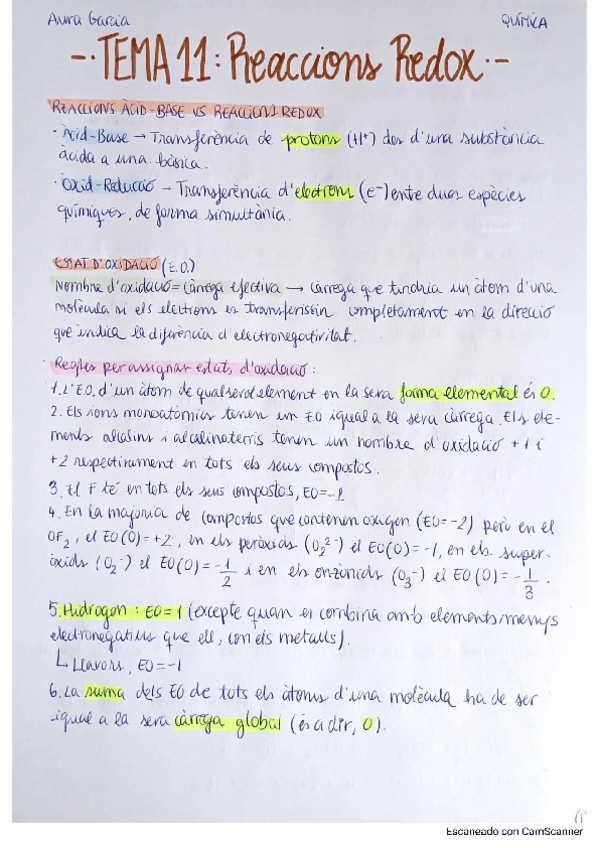 Aura Garcia
QUÍMICA
-·TEMA 11: Reaccions Redox·-
REACCIONS ÀCID-BASE VS REACCIONS REDOX
· Àcid-Base → Transferència de protons (H⁺) des d'una substància
àcida a una bàsica.
· Òxid-Reducció → Transferència d'electrons (e⁻) entre dues espècies
químiques, de forma simultània.
ESTAT D'OXIDACIÓ (E.O.)
Nombre d'oxidació = càrrega efectiva → càrrega que tindria un àtom d'una
molècula si els electrons es transferissin completament en la direcció
que indica la diferència d'electronegativitat.
· Regles per assignar estats d'oxidació:
1. L'E.O. d'un àtom de qualsevol element en la seva forma elemental és 0.
2. Els ions monoatòmics tenen un EO igual a la seva càrrega. Els ele-
ments alcalins i alcalinoterris tenen un nombre d'oxidació +1 i
+2 respectivament en tots els seus compostos.
3. El F té en tots els seus compostos, EO=-1.
4. En la majoria de compostos que contenen oxigen (EO=-2) però en el
OF₂, el EO(O)=+2, en els peròxids (O₂²⁻) el EO(O)=-1, en els super-
òxids (O₂⁻) el EO(O)=-1/2 i en els onzònids (O₃⁻) el EO(O)=-1/3.
5. Hidrogen: EO=1 (excepte quan es combina amb elements menys
electronegatius que ell, com els metalls).
↳ Llavors, EO=-1
6. La suma dels EO de tots els àtoms d'una molècula ha de ser
igual a la seva càrrega global (és a dir, 0).
Escaneado con CamScanner